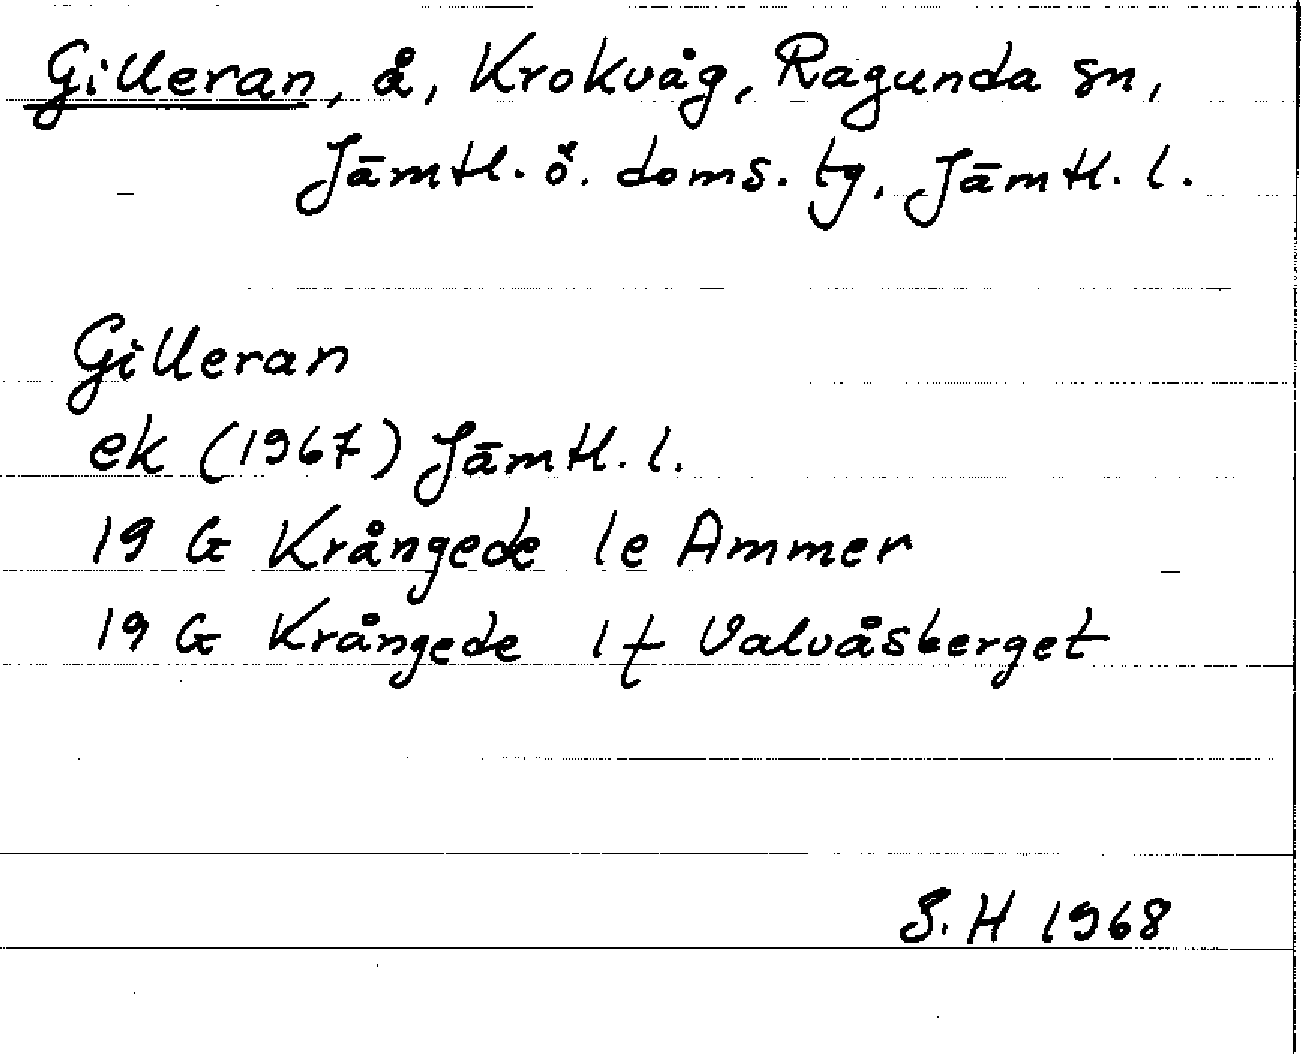 Gilleran, å, Krokvåg, Ragunda sn,
Jämtl. ö. doms. tg, Jämtl. l.
Gilleran
ek (1967) Jämtl. l.
19 G Krångede 1e Ammer
19 G Krångede 1f Valvåsberget
S. H 1968